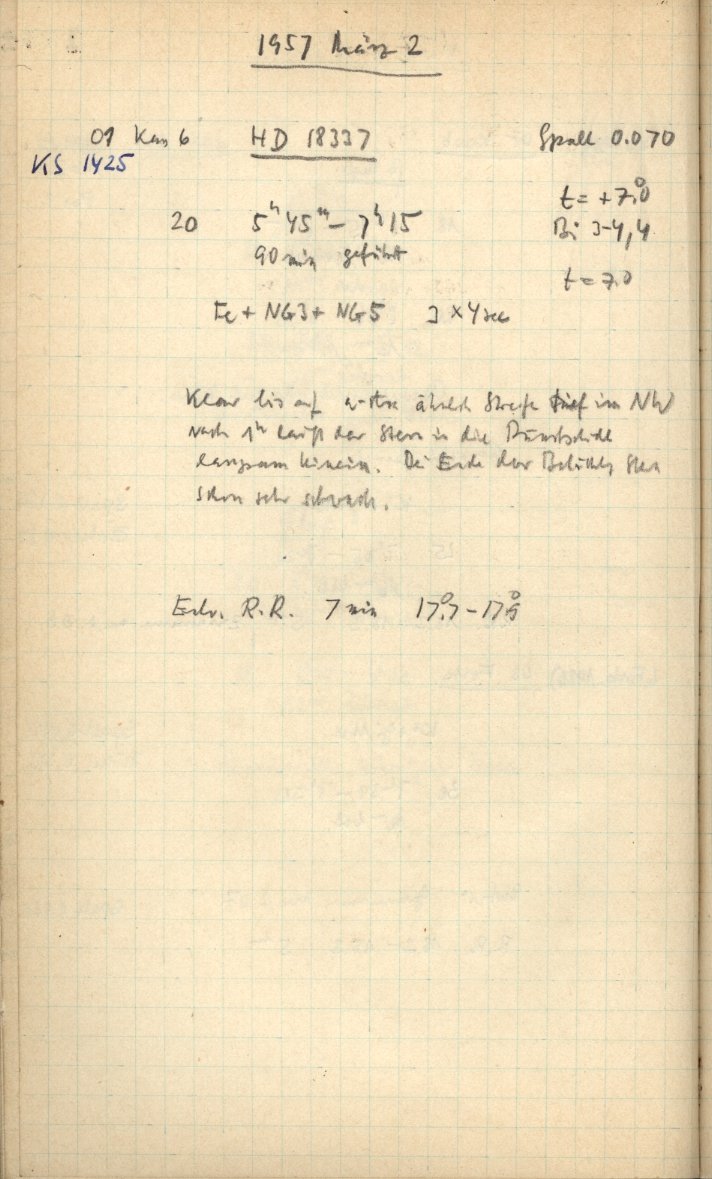 1957 März 2
09 Kas 6 HD 18337 Spalt 0.070
KS 1425
t = +7.°0
20 5ʰ45ᵐ – 7ʰ15 Bi 3-4,4
90 min geführt
t = 7.0
Fe + NG3 + NG5 3 × 4 sec
Klar bis auf Streife tief im NW
nach 1ʰ läuft der Stern in die Dunstschicht
langsam hinein. Bei Ende der Belichtg Stern
schon sehr schwach.
Entw. R.R. 7 min 17.°7 – 17.°5